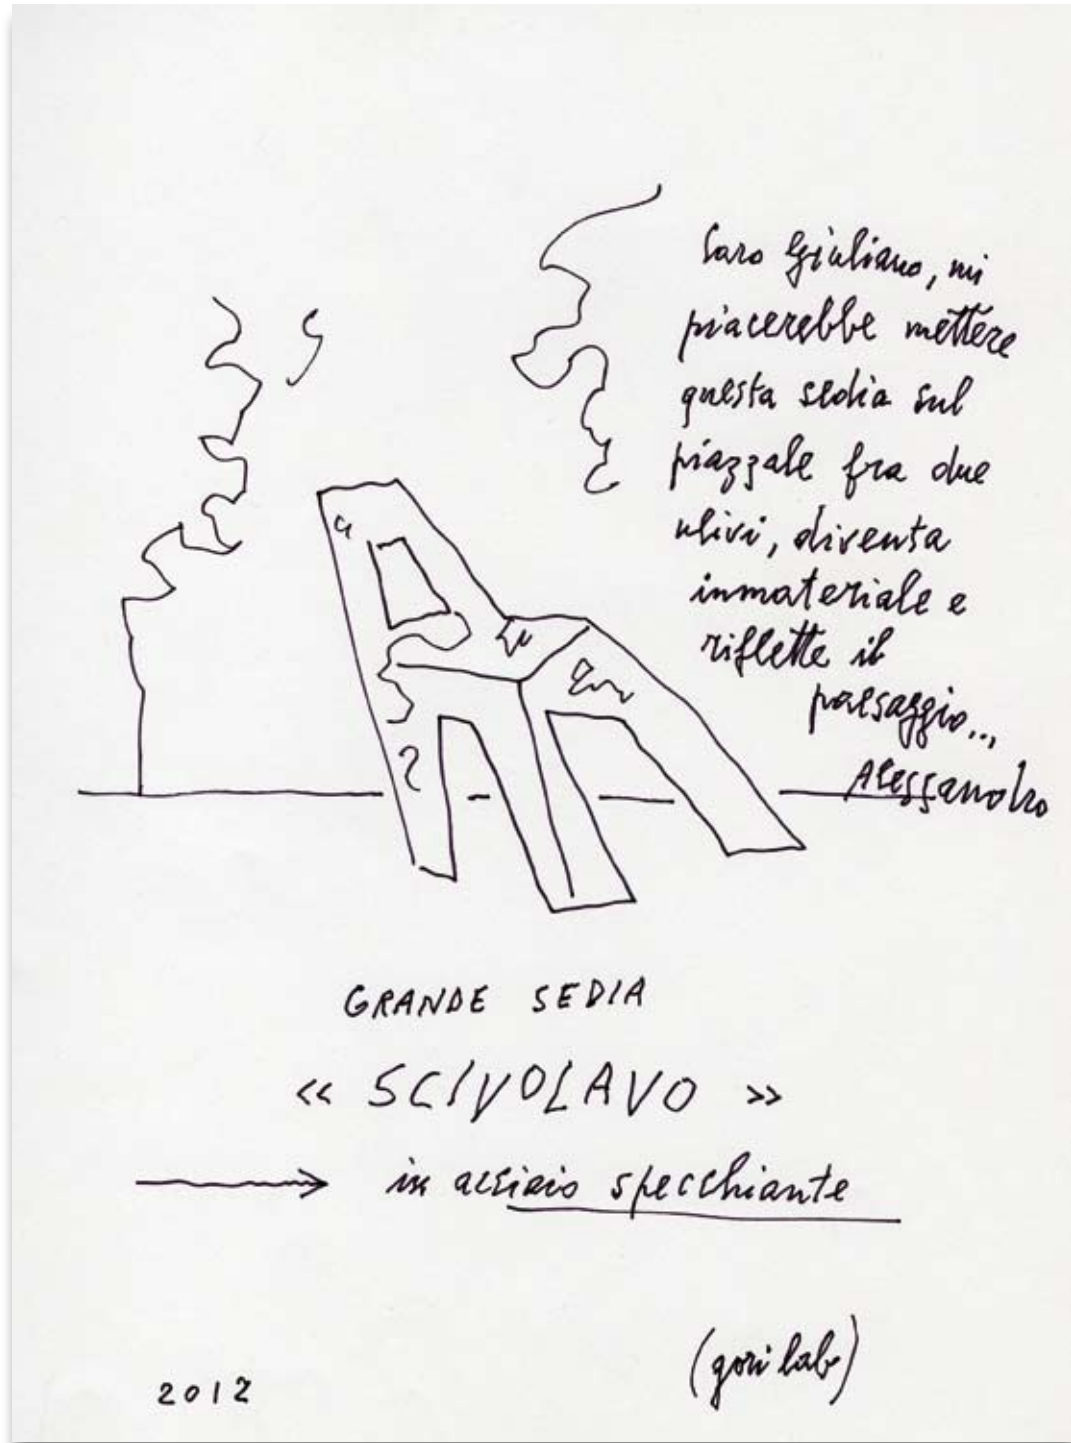 Caro Giuliano, mi
piacerebbe mettere
questa sedia sul
piazzale fra due
ulivi, diventa
inmateriale e
riflette il
paesaggio...
Alessandro
GRANDE SEDIA
« SCIVOLAVO »
in acciaio specchiante
(gori lab)
2012